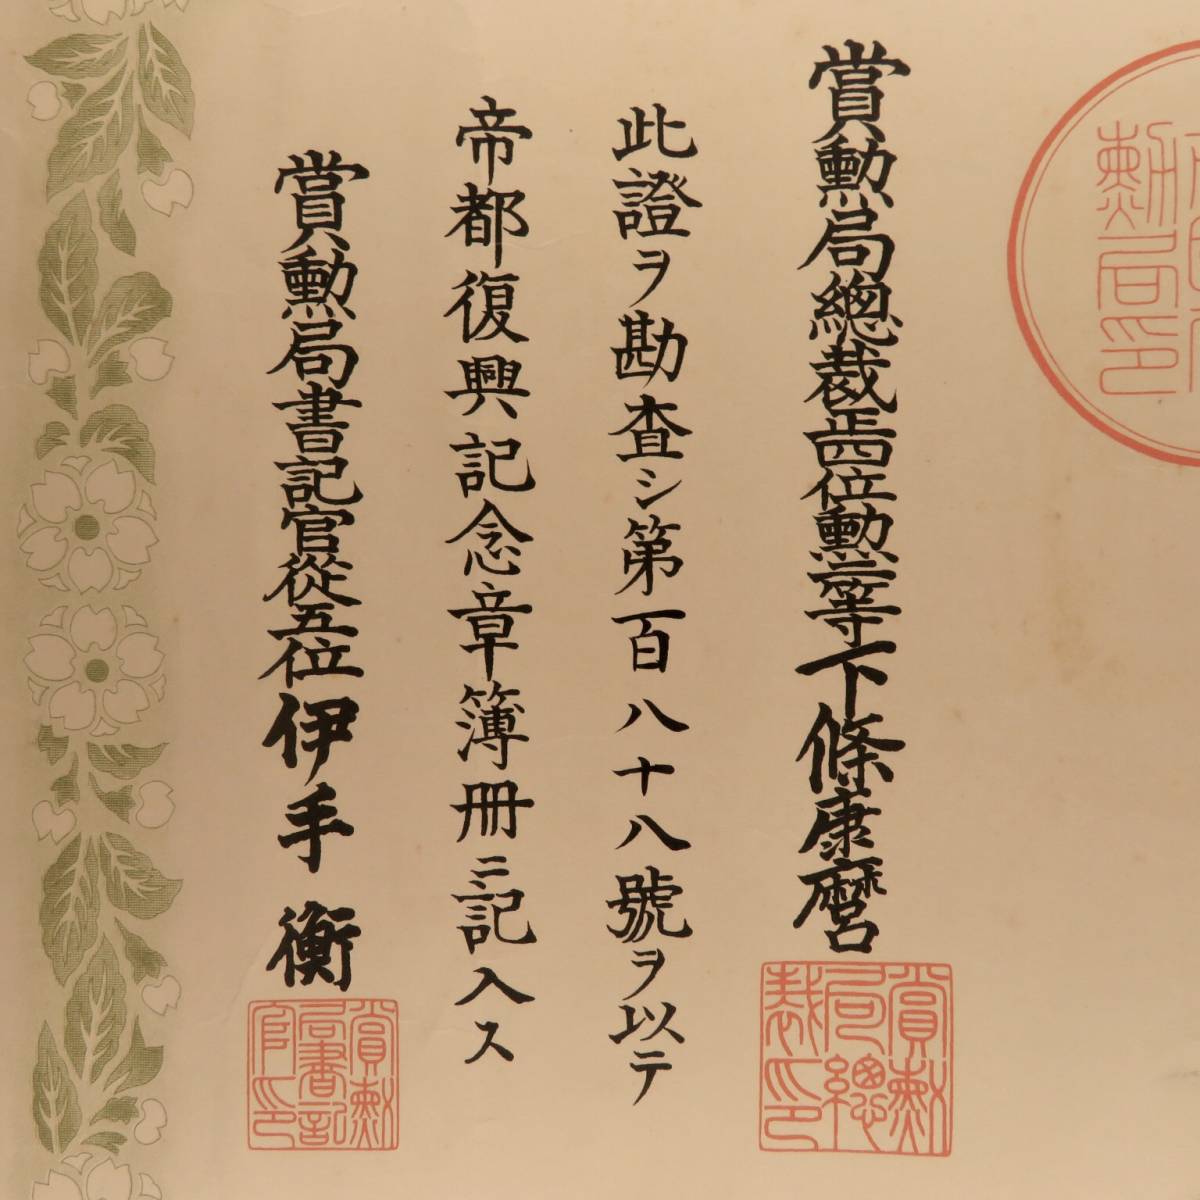 賞勲局印
賞勲局總裁正四位勲二等下條康麿
賞勲局總裁印
此證ヲ勘査シ第百八十八號ヲ以テ
帝都復興記念章簿册ニ記入ス
賞勲局書記官從五位伊手衡
賞勲局書記官印